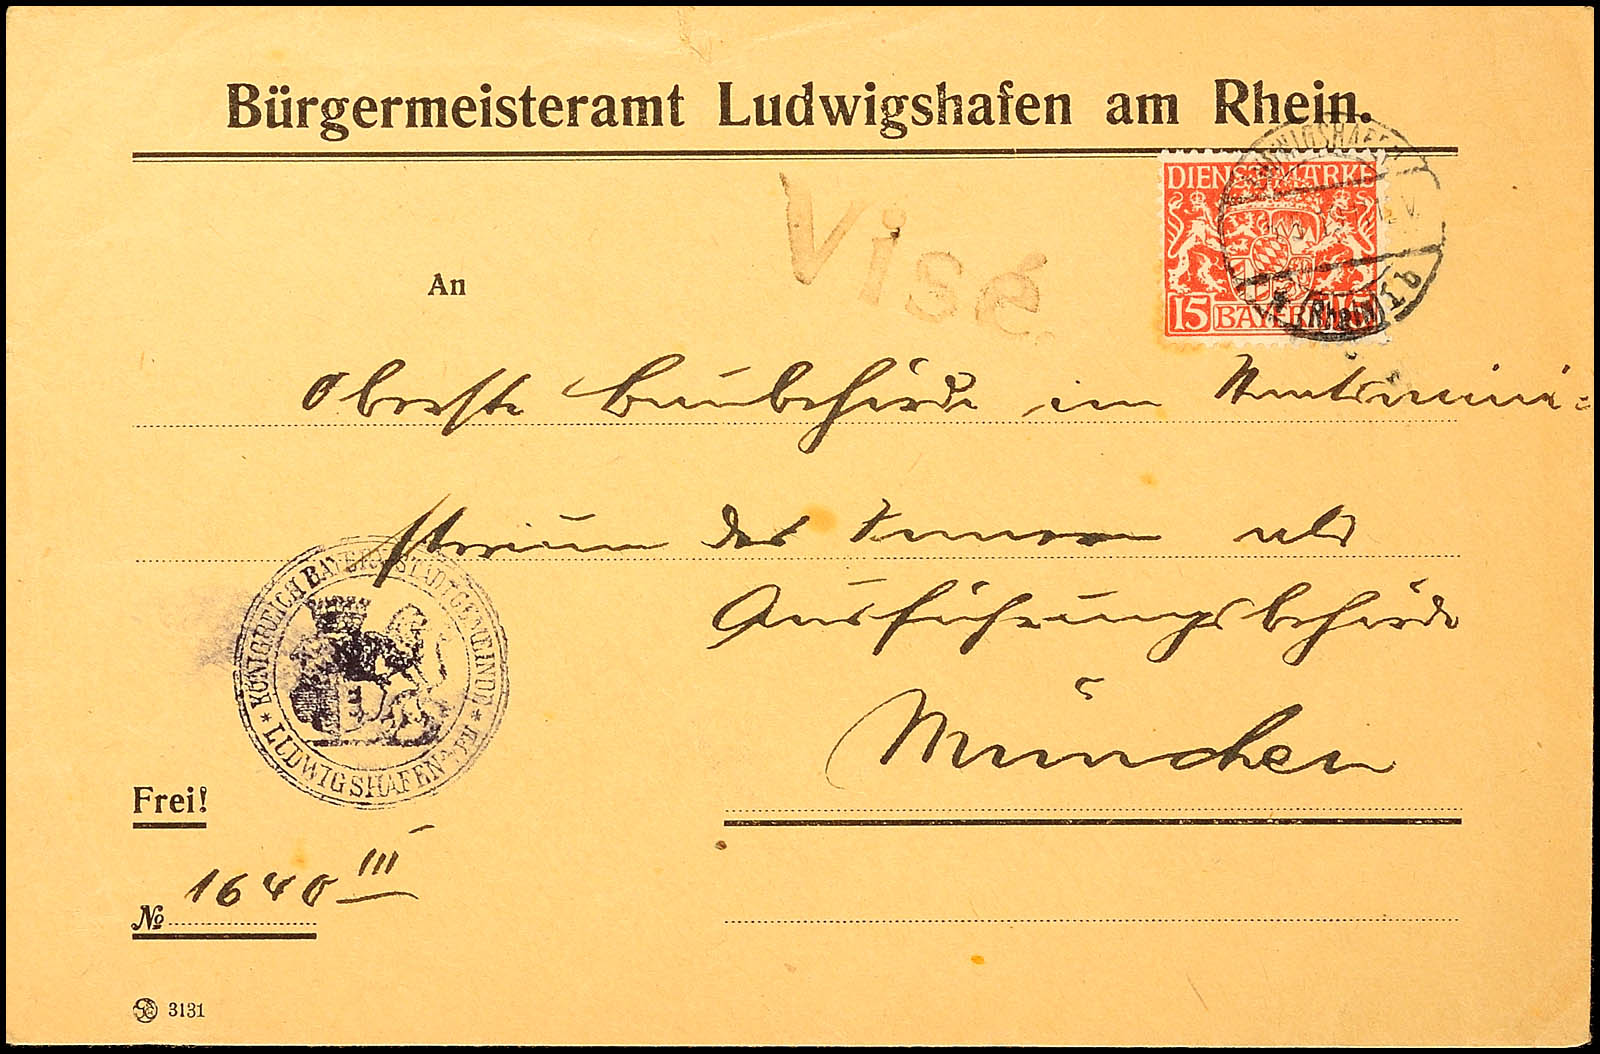 Bürgermeisteramt Ludwigshafen am Rhein.
DIENSTMARKE
15 BAYERN 15
LUDWIGSHAFEN
12 V.
(Rhein) 1 b
Visé
An
Oberste Baubehörde im Staatsmini-
sterium des Innern als
Ausführungsbehörde
München
KÖNIGREICH BAYERN STADTGEMEINDE
* LUDWIGSHAFEN a. RH *
Frei!
№ 1640 III
3131